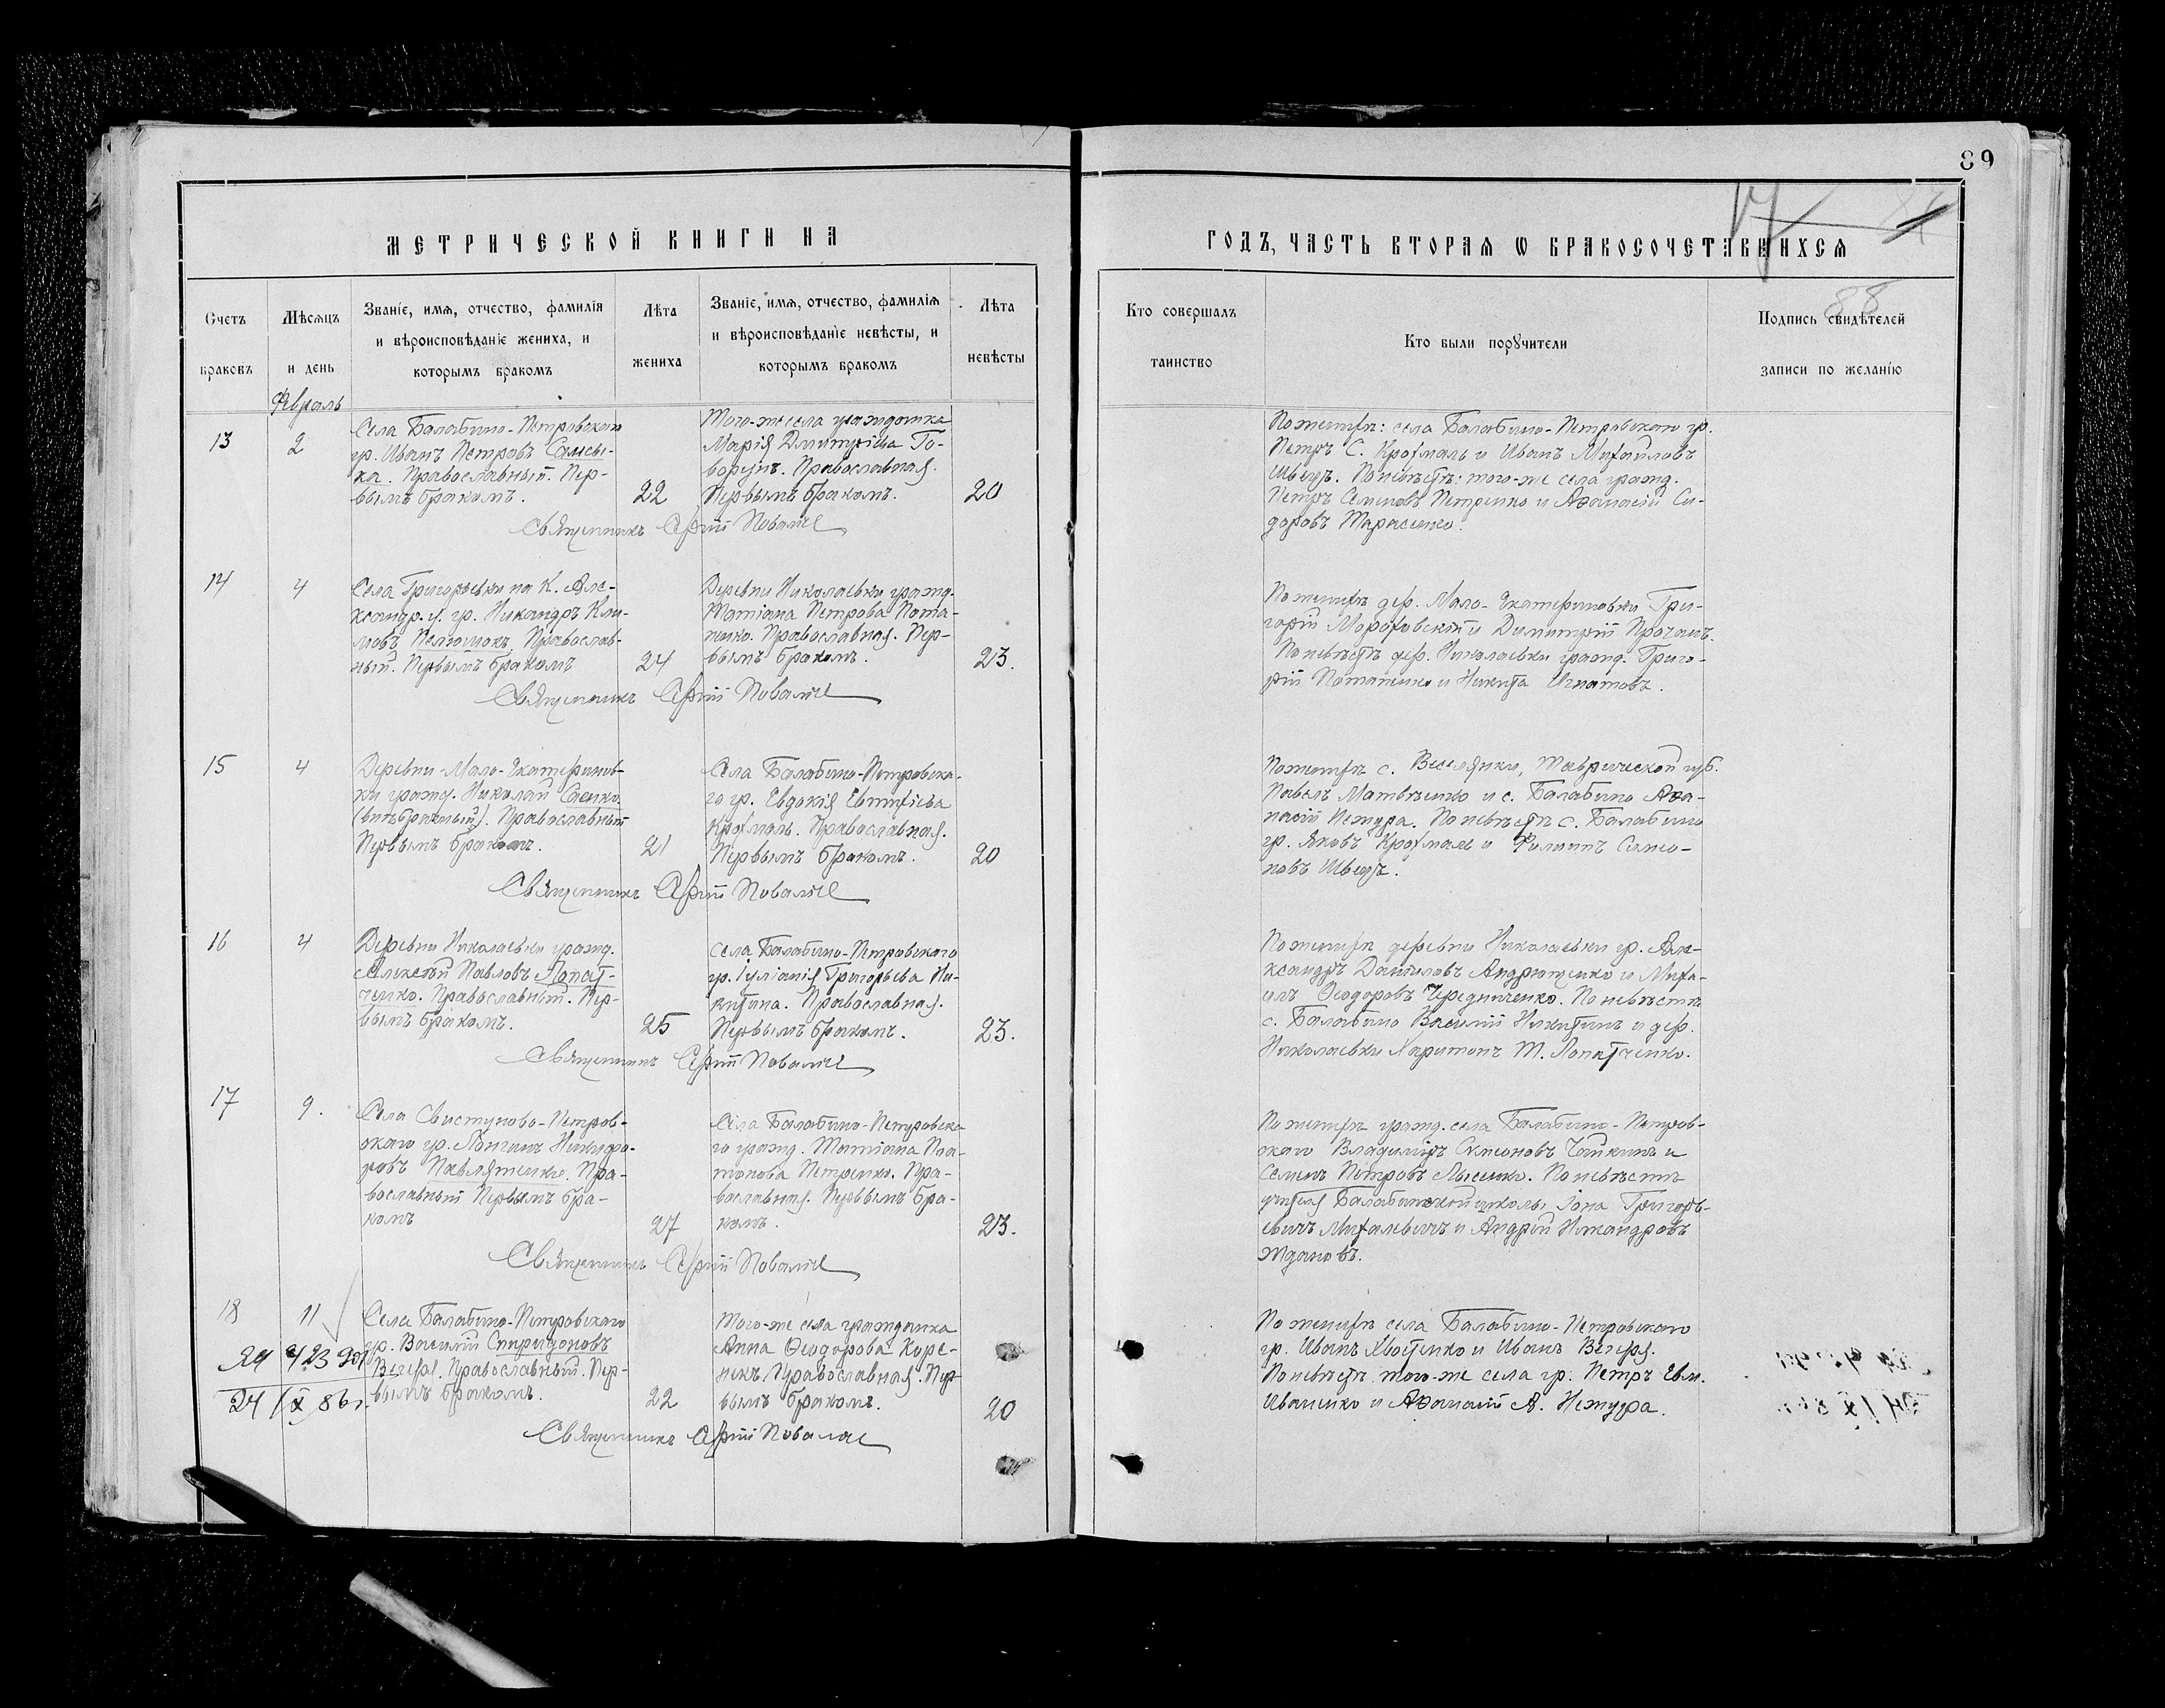 89
17
88
МЕТРИЧЕСКОЙ КНИГИ НА
ГОДЪ, ЧАСТЬ ВТОРАЯ Ѡ БРАКОСОЧЕТАВШИХСЯ
Счетъ браковъ
Мѣсяцъ и день
Званіе, имя, отчество, фамилія
и вѣроисповѣданіе жениха, и
которымъ бракомъ
Лѣта жениха
Званіе, имя, отчество, фамилія
и вѣроисповѣданіе невѣсты, и
которымъ бракомъ
Лѣта невѣсты
Кто совершалъ таинство
Кто были поручители
Подпись свидѣтелей
записи по желанію
Февраль
13
2
Села Балабино-Петровскаго
гр. Иванъ Петровъ
Православный. Пер-
вымъ бракомъ.
22
Того-же села гражданка
Марія Димитріева Го-
ворунъ. Православная.
Первымъ бракомъ.
20
Священникъ
По женихѣ: села Балабино-Петровскаго гр.
Петръ С. Крохмаль и Иванъ Михайловъ
Швецъ. По невѣстѣ: того-же села гражд.
Петръ Семеновъ Петренко и Аѳанасій Си-
доровъ Тарасенко.
14
4
Села Григорьевки на К. Але-
ксандр. у. гр. Никандръ Кли-
мовъ Православ-
ный. Первымъ бракомъ
24
Деревни Николаевки гражд.
Татіана Петрова Пота-
пенко. Православная. Пер-
вымъ бракомъ.
23.
Священникъ
По женихѣ дер. Мало-Екатериновки Гри-
горій Мороховскій и Димитрій
По невѣстѣ дер. Николаевки гражд. Григо-
рій Потапенко и Никита Игнатовъ.
15
4
Деревни Мало-Екатеринов-
ки гражд. Николай Саенко
(внѣбрачный). Православный
Первымъ бракомъ.
21
Села Балабино-Петровска-
го гр. Евдокія Евтихіева
Крохмаль. Православная.
Первымъ бракомъ.
20
Священникъ
По женихѣ с. Веселянки, Таврической губ.
Павелъ Матвѣенко и с. Балабино Аѳа-
насій Нетура. По невѣстѣ с. Балабино
гр. Яковъ Крохмаль и Филиппъ Симео-
новъ Швецъ.
16
4
Деревни Николаевки гражд.
Алексѣй Павловъ Лопат-
ченко. Православный. Пер-
вымъ бракомъ.
25
Села Балабино-Петровскаго
гр. Іуліанія Григорьева Ни-
китина. Православная.
Первымъ бракомъ.
23.
Священникъ
По женихѣ деревни Николаевки гр. Але-
ксандръ Даниловъ Андрющенко и Миха-
илъ Ѳеодоровъ Чередниченко. По невѣстѣ
с. Балабино Василій Никитинъ и дер.
Николаевки Харитонъ Т. Лопатченко.
17
9.
Села Свистуново-Петров-
скаго гр. Лонгинъ Никифо-
ровъ Павлятенко. Пра-
вославный Первымъ бра-
комъ
27
Села Балабино-Петровска
го гражд. Татіана Пла-
тонова Петренко. Пра-
вославная. Первымъ бра-
комъ.
23.
Священникъ
По женихѣ гражд. села Балабино-Петров-
скаго Владиміръ Симеоновъ Чайкинъ и
Семенъ Петровъ Лысенко. По невѣстѣ
учителя Балабинской школы Іона Григорь-
евичъ Михалевичъ и Андрей Никандровъ
Ждановъ.
18
11
Села Балабино-Петровскаго
гр. Василій Спиридоновъ
Вечеря. Православный. Пер-
вымъ бракомъ.
22
Того-же села гражданка
Анна Ѳеодорова Коре-
никъ. Православная. Пер-
вымъ бракомъ.
20
24 IX 86г.
Священникъ
По женихѣ села Балабино-Петровскаго
гр. Иванъ Костенко и Иванъ Вечеря.
По невѣстѣ того-же села гр. Петръ Евм.
Иваненко и Аѳанасій А. Нетура.